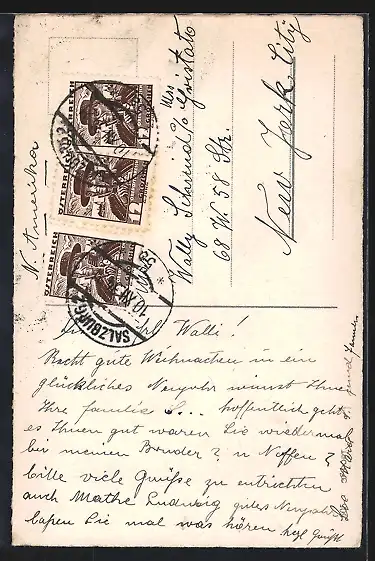 N. Amerika
ÖSTERREICH
12
ÖSTERREICH
12
ÖSTERREICH
SALZBURG 2
10.XII.3
Mrs
Wally Schmid c/o
68 W 58 Str.
New York City
Walli!
Recht gute Weihnachten u ein
glückliches Neujahr wünscht Ihnen
Ihre familie S... hoffentlich geht
es Ihnen gut waren Sie wiedermal
bei meinen Bruder? u Neffen?
bitte viele Grüße zu entrichten
auch Mathe Ludwig gutes Neujahr
laßen Sie mal was hören herzl Grüße